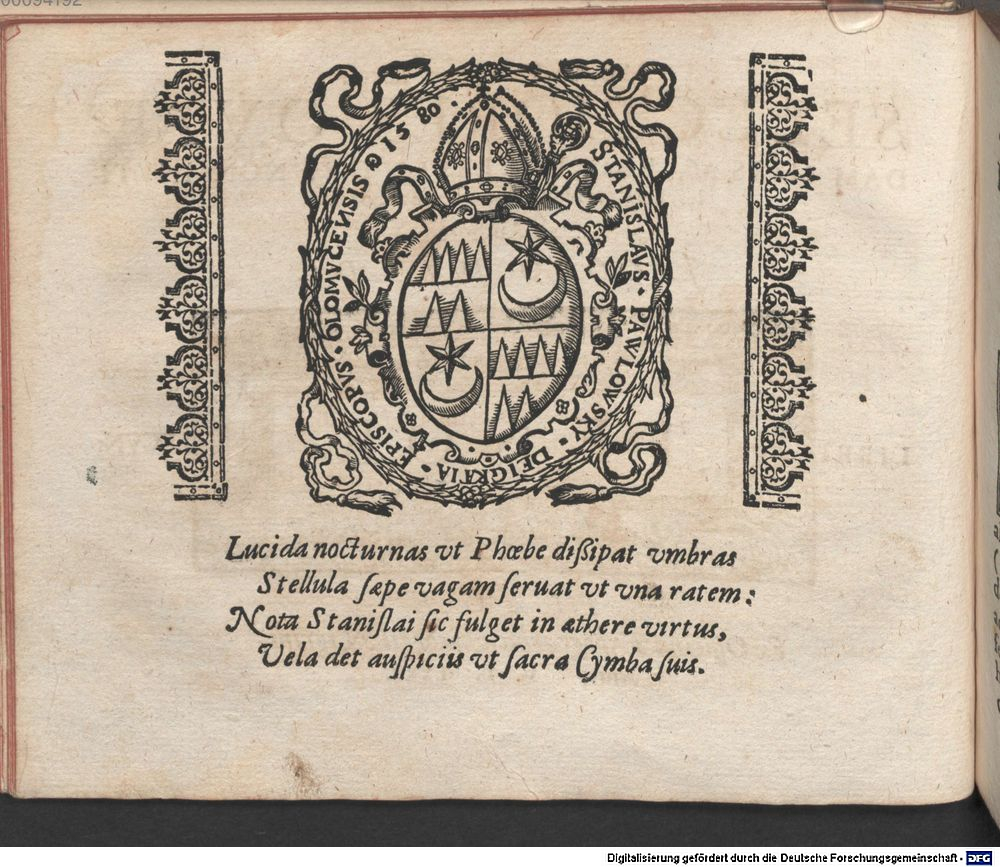 00094192
STANISLAVS · PAWLOWSKY · DEI GRATIA · EPISCOPVS · OLOMVCENSIS 1580
Lucida nocturnas vt Phœbe dißipat vmbras
Stellula sæpe vagam seruat vt vna ratem:
Nota Stanislai sic fulget in æthere virtus,
Vela det auspiciis vt sacra Cymba suis.
Digitalisierung gefördert durch die Deutsche Forschungsgemeinschaft - DFG